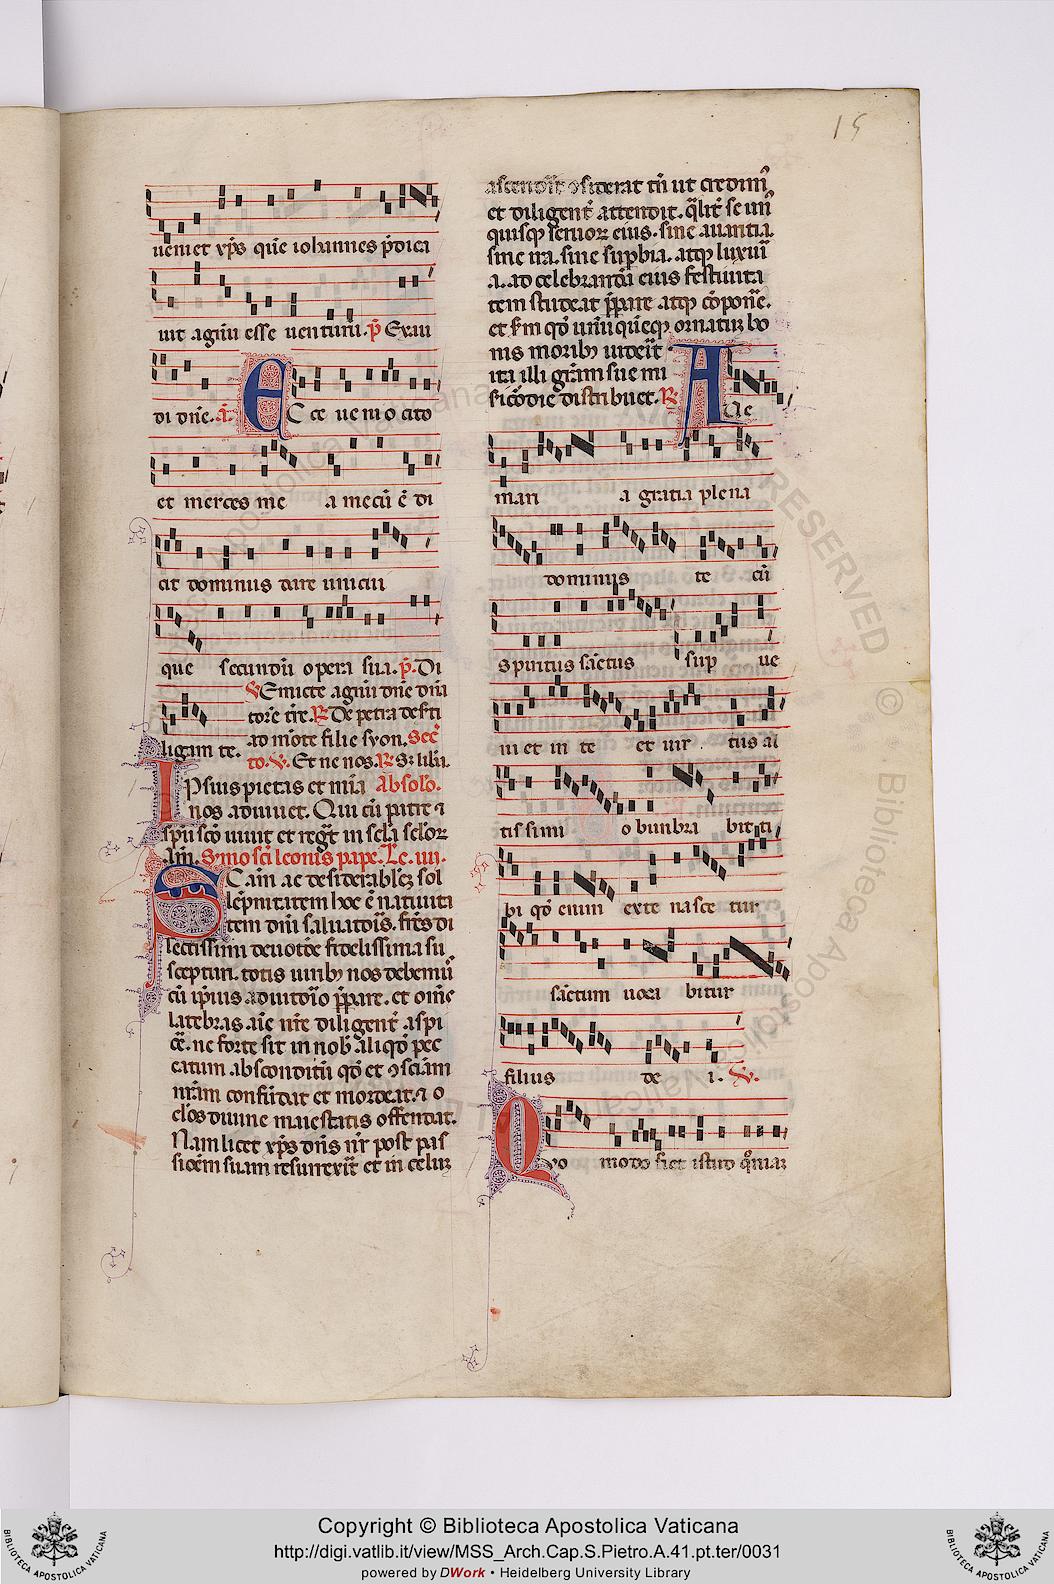 15
ueniet xp̄s quē iohannes p̄dica
uit agnū esse uenturū. p̄ Exau
di dn̄e. a. Ecce uenio cito
et merces mea mecū ē di
cit dominus dare unicui
que secundū opera sua. p̄. Di
ligam te.
V Emitte agnū dn̄e dn̄a
torē tr̄e. R De petra deſti
ad mōte filie syon. Sec̄
to. V. Et ne nos. R S; liƀa.
Ipsius pietas et mīa Absolo.
nos adiuuet. Qui cū patre ⁊
sp̄u sc̄o uiuit et regn̄t in sc̄la sc̄loꝝ
am̄. Smo sc̄i leonis pape. Le. iiii.
Scām ac desiderabilē; sol
lēpnitatem hāc ē natiuita
tem dn̄i saluatoris. fr̄es di
lectissimi deuotōe fidelissima su
scepturi. totis uirib; nos debemꝰ
cū ip̄ius adiutōio p̄pare. et om̄e
latebras aīe nr̄e diligent̄ aspi
cē. ne forte sit in nob̄ aliqd̄ pec
catum absconditū qd̄ et ꝯsciām
nr̄am confūdat et mordeat. ⁊ o
clos diuine maiestatis offendat.
Nam licet xp̄s dn̄s nr̄ post pas
sionem suam resurrexit̄ et in celuꝫ
ascendit̄ ꝯsiderat tn̄ ut credimꝰ
et diligent̄ attendit. qualit̄ se unꝰ
quisq; seruoꝝ eius. sine auaritia.
sine ira. sine sup̄bia. atq; luxuri
a. ad celebrandā eius festiuita
tem studeat p̄pare atq; cōponē.
et sm̄ qd̄ unū quēq; ornatuꝫ bo
nis morib; uiderit̄
ita illi gr̄am sue mi
sicōdie distribuet. R. A
ue
mari a gratia plena
dominus te cū
Spiritus sāctus sup ue
ni et in te et uir tus al
tissimi obunbra bit ti
bi qd̄ enim exte nasce tur
sāctum uoca bitur
filius de i. V.
Quo modo fiet istud qn̄iaꝫ
Copyright © Biblioteca Apostolica Vaticana
http://digi.vatlib.it/view/MSS_Arch.Cap.S.Pietro.A.41.pt.ter/0031
powered by DWork • Heidelberg University Library